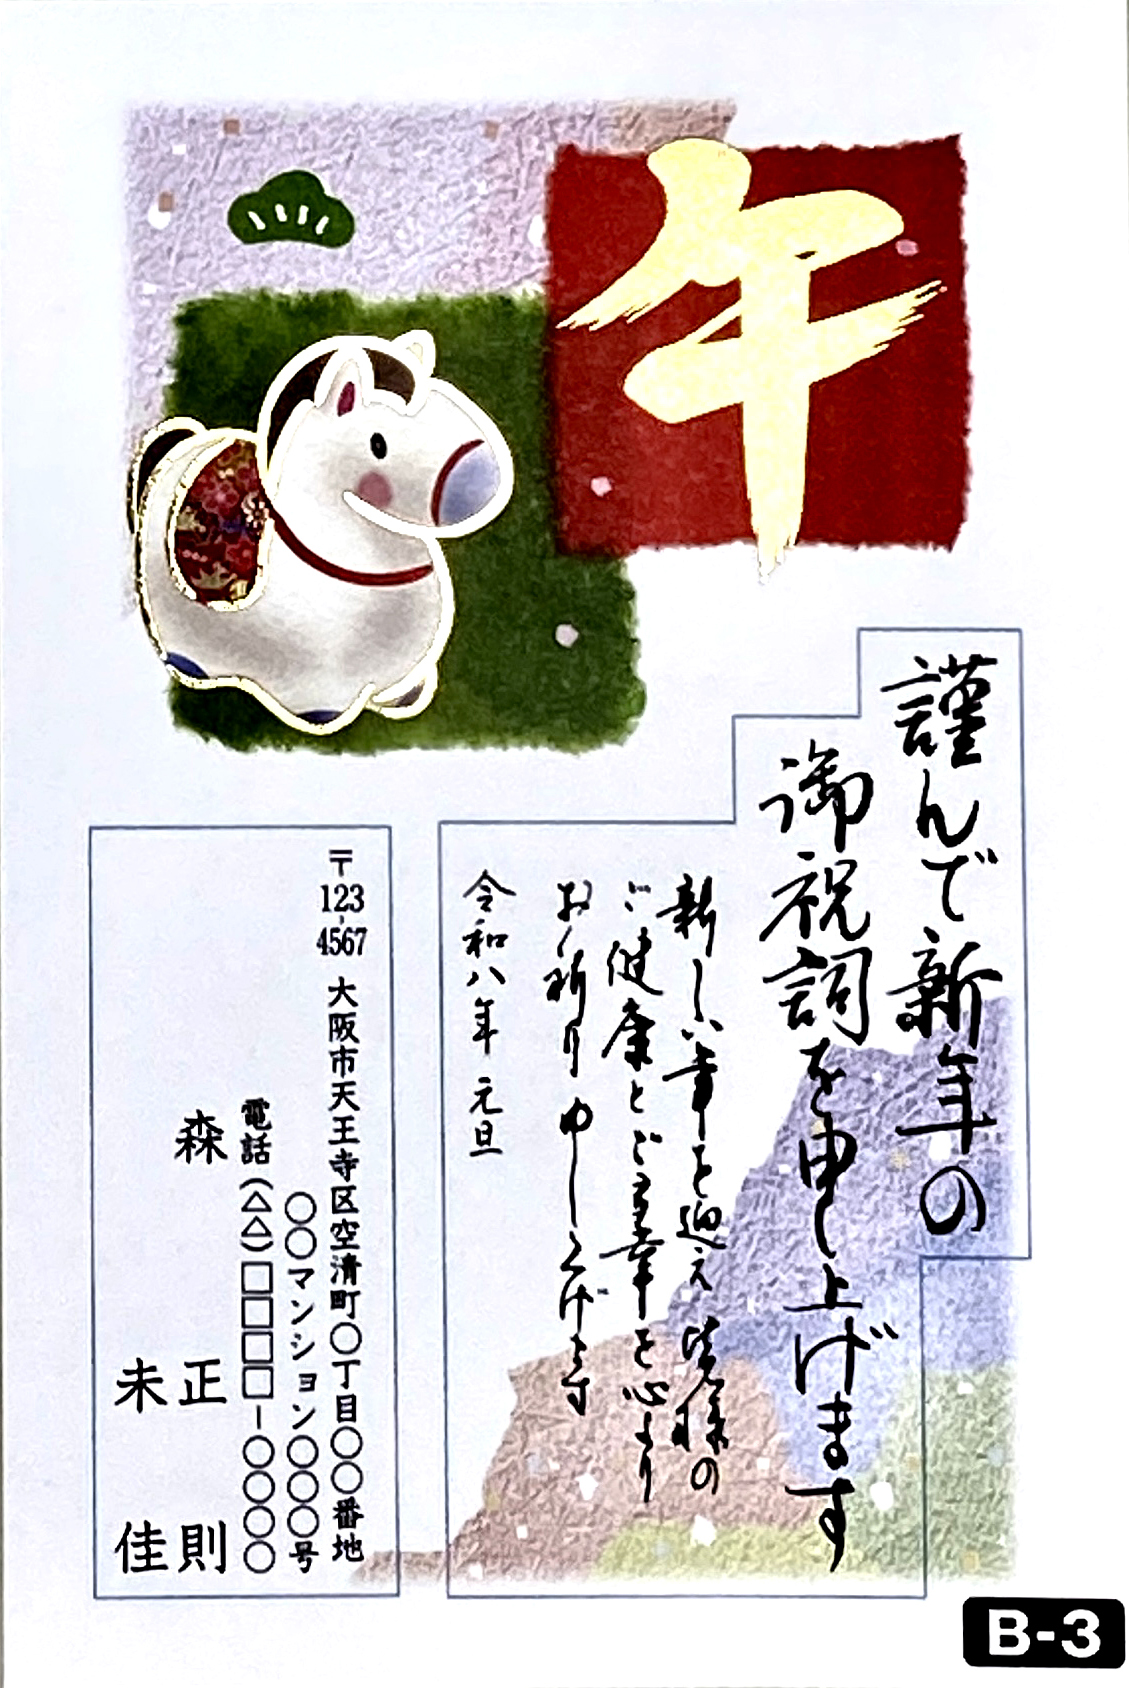 午
謹んで新年の
御祝詞を申し上げます
新しい年を迎え皆様の
ご健康とご多幸を心より
お祈り申し上げます
令和八年 元旦
〒123-4567 大阪市天王寺区空清町○丁目○○番地
○○マンション○○○号
電話(△△)□□□□-○○○○
森 正則
未佳
B-3